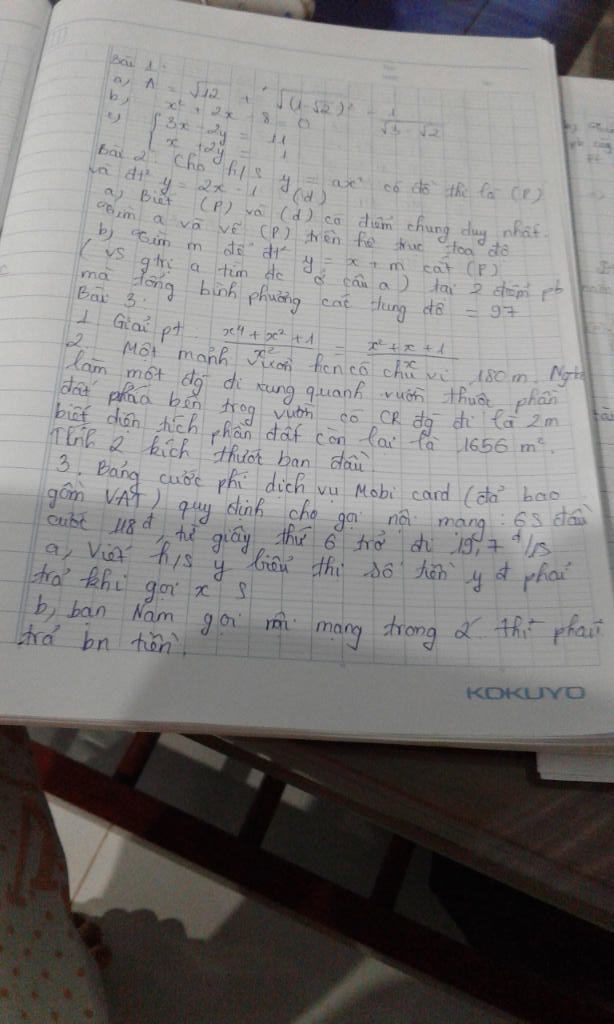 Bài 1:
a, A = √12 + √(1-√2)² - 1/(√3-√2)
b, x² + 2x - 8 = 0
c, { 3x - 2y = 11
x + 2y = 1
Bài 2. Cho h/s y = ax² có đồ thị là (P)
và đt² y = 2x - 1 (d)
a) Biết (P) và (d) có điểm chung duy nhất.
tìm a và vẽ (P) trên hệ trục toạ độ
b) tìm m để đt² y = x + m cắt (P)
(vs gtrị a tìm dc ở câu a) tại 2 điểm pb
mà tổng bình phương các tung độ = 97
Bài 3.
1. Giải pt: (x⁴ + x² + 1)/x² = (x² + x + 1)/x
2. Một mảnh vườn hcn có chu vi 180 m.
làm một đg đi xung quanh vườn thuộc phần
đất phía bên trog vườn có CR đg đi là 2m
biết diện tích phần đất còn lại là 1656 m².
Tính 2 kích thước ban đầu
3. Bảng cước phí dịch vụ Mobi card (đã bao
gồm VAT) quy định cho gọi nội mạng: 6s đầu
cước 118 đ, từ giây thứ 6 trở đi 19,7 đ/s
a, Viết h/s y biểu thị số tiền y đ phải
trả khi gọi x s
b, bạn Nam gọi nội mạng trong 2' thì phải
trả bn tiền.
KOKUYO